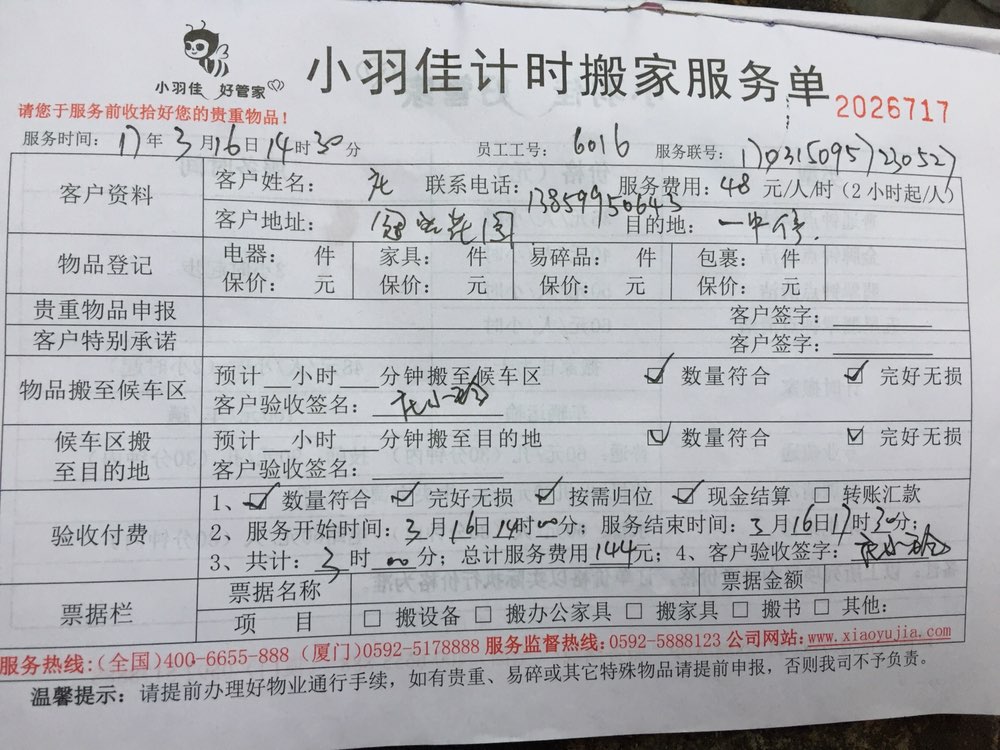 小羽佳 好管家
小羽佳计时搬家服务单
2026717
请您于服务前收拾好您的贵重物品!
服务时间: 17年3月16日14时30分 员工工号: 6016 服务联号: 1703150957230527
客户资料
客户姓名: 联系电话: 13859950643 服务费用: 48元/人/时(2小时起/人)
客户地址: 花园 目的地: 一中
物品登记
电器: 件 家具: 件 易碎品: 件 包裹: 件
保价: 元 保价: 元 保价: 元 保价: 元
贵重物品申报 客户签字:
客户特别承诺 客户签字:
物品搬至候车区
预计__小时__分钟搬至候车区 ☑ 数量符合 ☑ 完好无损
客户验收签名:
候车区搬
至目的地
预计__小时 分钟搬至目的地 ☑ 数量符合 ☑ 完好无损
客户验收签名:
验收付费
1、☑ 数量符合 ☑ 完好无损 ☑ 按需归位 ☑ 现金结算 □ 转账汇款
2、服务开始时间: 3月16日14时00分; 服务结束时间: 3月16日17时30分;
3、共计: 3时00分; 总计服务费用144元; 4、客户验收签字:
票据栏
票据名称 票据金额
项 目 □ 搬设备 □ 搬办公家具 □ 搬家具 □ 搬书 □ 其他:
服务热线:(全国)400-6655-888 (厦门)0592-5178888 服务监督热线:0592-5888123 公司网站:www.xiaoyujia.com
温馨提示: 请提前办理好物业通行手续, 如有贵重、易碎或其它特殊物品请提前申报, 否则我司不予负责。